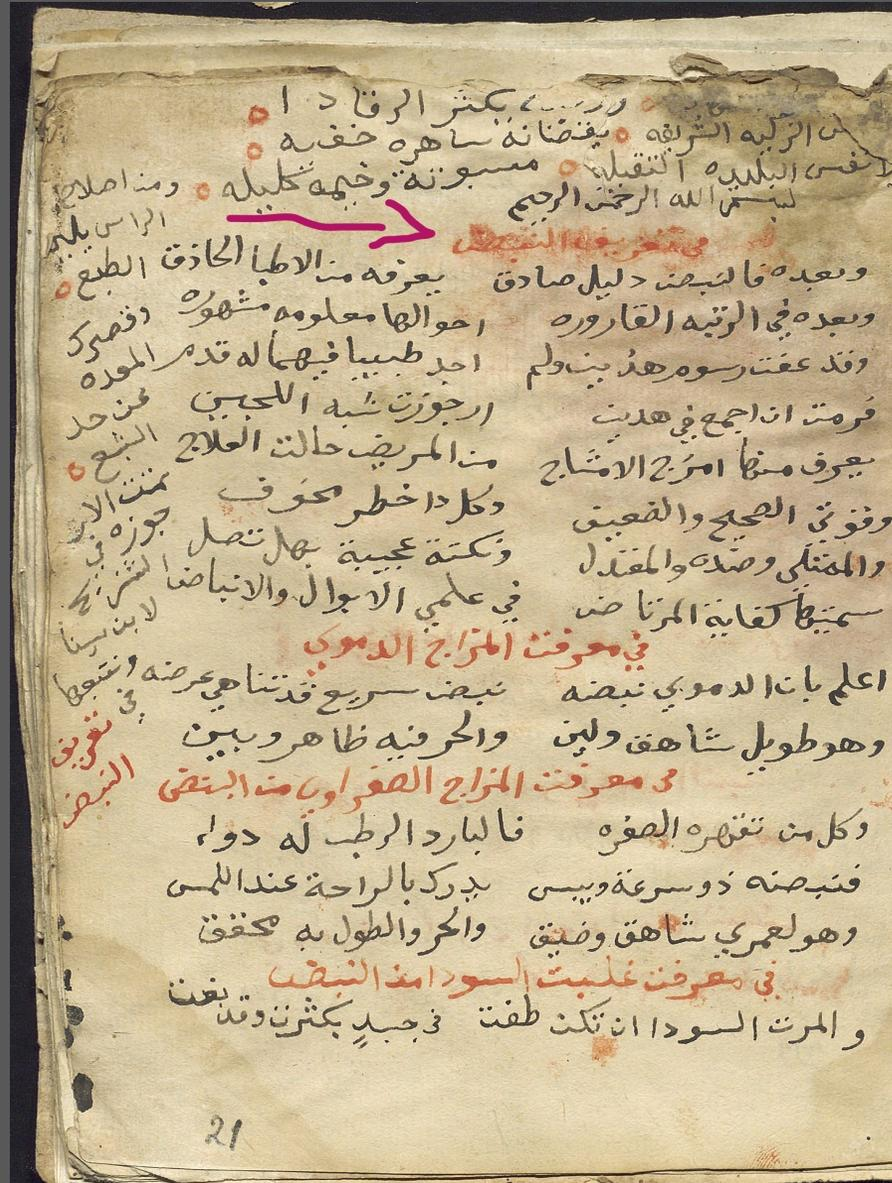 يكثر الرقادا
الشريفه يقضانة ساهره خفيه
البليده الثقيله مسبوتة وخيمه كليله
بسم الله الرحمن الرحيم
في تعريف النبض
وبعده فالنبض دليل صادق يعرفه من الاطبا الحاذق
وبعده في الرتبه القاروره احوالها معلومه مشهوره
وقد عفت رسوم هذين ولم اجد طبيبا فيهما له قدم
فرمت ان اجمع في هذين ارجوزت شبه اللجين
يعرف منها امزج الامشاج من المريض حالت العلاج
وقوتي الصحيح والضعيف وكل دا خطر مخوف
والممتلي وضده والمعتدل ونكتة عجيبة بهل تصل
سميتها كفاية المرتاض في علمي الابوال والانباضا
في معرفت المزاج الدموي
اعلم بان الدموي نبضه نبض سريع قد تناهي عرضه
وهو طويل شاهق ولين والحر فيه ظاهر وبين
في معرفت المزاج الصفراوي من النبض
وكل من تقهره الصفره فالبارد الرطب له دواء
فنبضه ذو سرعة ويبس يدرك بالراحة عند اللمس
وهو لعمري شاهق وضيق والحر والطول به محقق
في معرفت غلبت السودا من النبض
والمرت السودا ان تكن طفت في جسدٍ بكثرت وقد بغت
ومن اصلاح
الراس يلين
الطبع
وقصرك
المعده
عن حد
الشبع
تمت الار
جوزه في
التشريح
لابن سينا
وتتبعها
في
تعريف
النبض
21